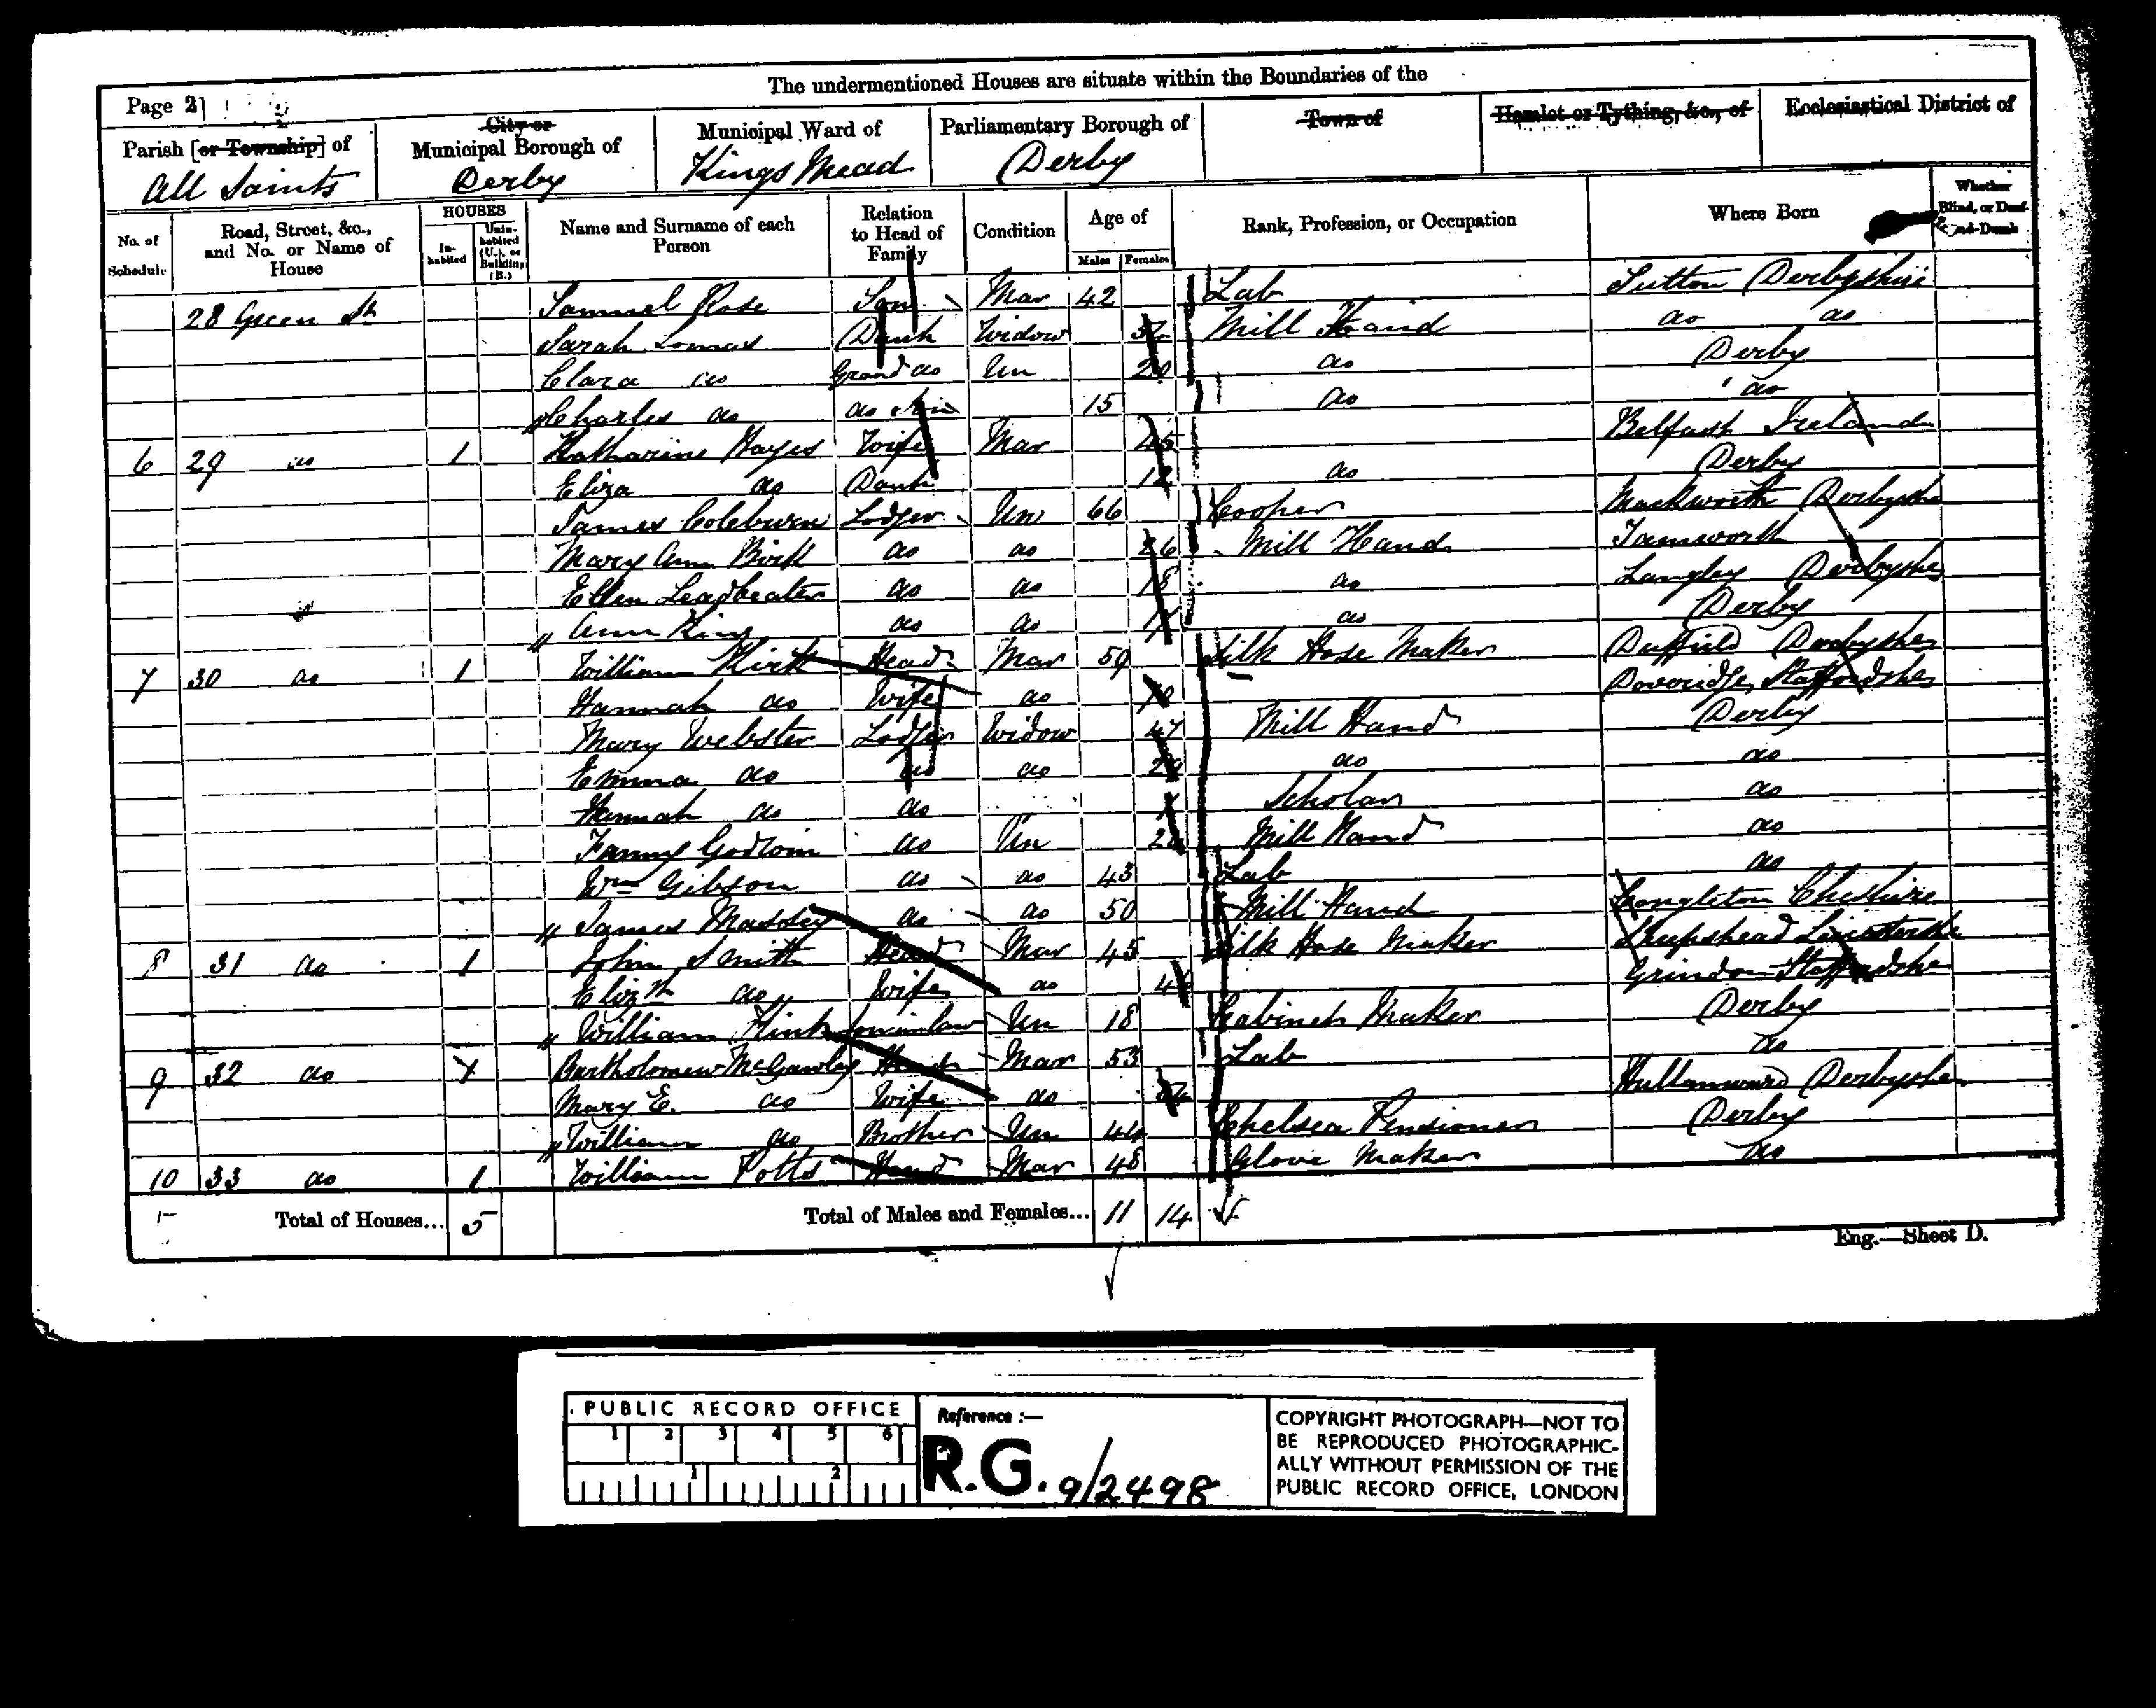 The undermentioned Houses are situate within the Boundaries of the
Page 21
Parish [or Township] of All Saints
City or Municipal Borough of Derby
Municipal Ward of Kings Mead
Parliamentary Borough of Derby
Town of
Hamlet or Tything, &c., of
Ecclesiastical District of
No. of Schedule
Road, Street, &c., and No. or Name of House
HOUSES
Inhabited
Uninhabited (U.), or Building (B.)
Name and Surname of each Person
Relation to Head of Family
Condition
Age of
Males
Females
Rank, Profession, or Occupation
Where Born
Whether Blind, or Deaf-and-Dumb
28 Green St Samuel Rose Son Mar 42 Lab Sutton Derbyshire
Sarah Lomas Daur Widow Mill Hand do do
Clara do Grand do Un 20 do Derby
Charles do do Son 15 do do
6 29 do 1 Katharine Hayes Wife Mar 45 Belfast Ireland
Eliza do Daur 12 do Derby
James Coleburn Lodger Un 66 Cooper Mackworth Derbyshe
Mary Ann Birk do do 26 Mill Hand Tamworth
Ellen Leadbeater do do 18 do Langley Derbyshe
" Ann King do do do Derby
7 30 do 1 William Kirk Head Mar 59 Silk Hose Maker Duffield Derbyshe
Hannah do Wife do Doveridge Staffordshe
Mary Webster Lodger Widow 47 Mill Hand Derby
Emma do do do do do
Hannah do do Scholar do
Fanny Godwin do Un Mill Hand do
Wm Gibson do do 43 Lab do
" James Massey do do 50 Mill Hand Congleton Cheshire
8 31 do 1 John Smith Head Mar 45 Silk Hose Maker Shepshead
Elizth do Wife do Grindon Staffordshe
" William Soninlaw Un 18 Cabinet Maker Derby
9 32 do 1 Bartholomew McGawley Head Mar 53 Lab do
Mary E. do Wife do Derbyshe
" William do Brother Un 44 Chelsea Pensioner Derby
10 33 do 1 William Potts Head Mar 48 Glove Maker do
Total of Houses... 5
Total of Males and Females... 11 14
Eng.—Sheet D.
PUBLIC RECORD OFFICE
1 2 3 4 5 6
1 2
Reference :—
R.G. 9/2498
COPYRIGHT PHOTOGRAPH—NOT TO
BE REPRODUCED PHOTOGRAPHIC-
ALLY WITHOUT PERMISSION OF THE
PUBLIC RECORD OFFICE, LONDON